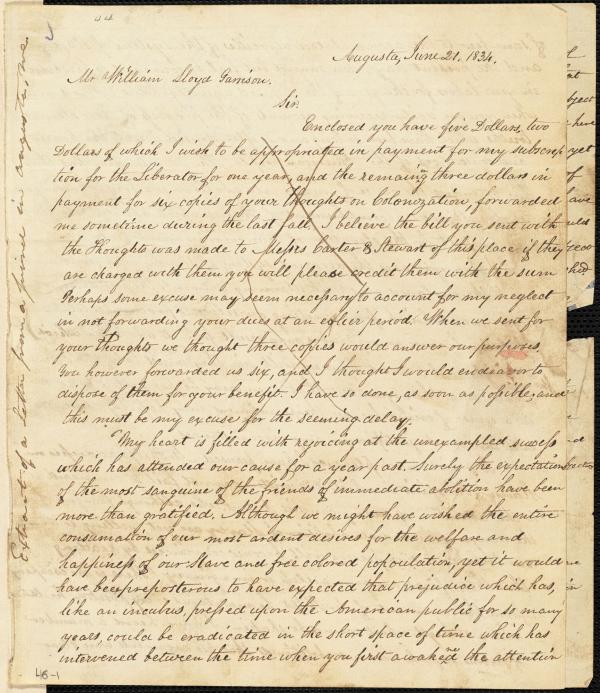 Augusta, June 21. 1834.
Mr William Lloyd Garrison.
Sir.
Enclosed you have five Dollars, two
Dollars of which I wish to be appropriated in payment for my subscrip
tion for the Liberator for one year, and the remaining three dollars in
payment for six copies of your thoughts on Colonization, forwarded
me sometime during the last fall, I believe the bill you sent with
the Thoughts was made to Messrs Carter & Stewart of this place if they
are charged with them you will please credit them with the sum
Perhaps some excuse may seem necessary to account for my neglect
in not forwarding your dues at an erlier period. When we sent for
your Thoughts we thought three copies would answer our purposes,
You however forwarded us six, and I thought I would endeavor to
dispose of them for your benefit. I have so done, as soon as possible, and
this must be my excuse for the seeming delay.
"My heart is filled with rejoicing at the unexampled success
which has attended our cause for a year past. Surely the expectations
of the most sanguine of the friends of immediate abolition have been
more than gratified. Although we might have wished the entire
consumation of our most ardent desires for the welfare and
happiness of our Slave and free colored popoulation, yet it would
have been preposterous to have expected that prejudice which has,
like an incubus, pressed upon the American public for so many
years, could be eradicated in the short space of time which has
intervened between the time when you first awakened the attention
46-1
Extract of a letter from a friend in Augusta, Me.